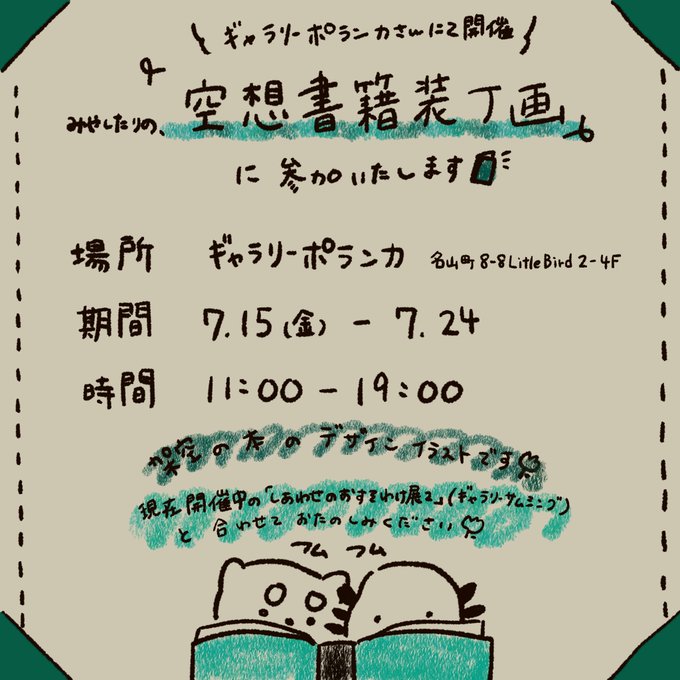 ギャラリーポランカさんにて開催
みやしたりの、空想書籍装丁画
に参加いたします
場所 ギャラリーポランカ 名山町8-8 Little Bird 2-4F
期間 7.15(金) - 7.24
時間 11:00 - 19:00
架空の本のデザインイラストです
現在開催中の「しあわせのおすそわけ展2」(ギャラリーサムミング)
と合わせておたのしみください
フムフム